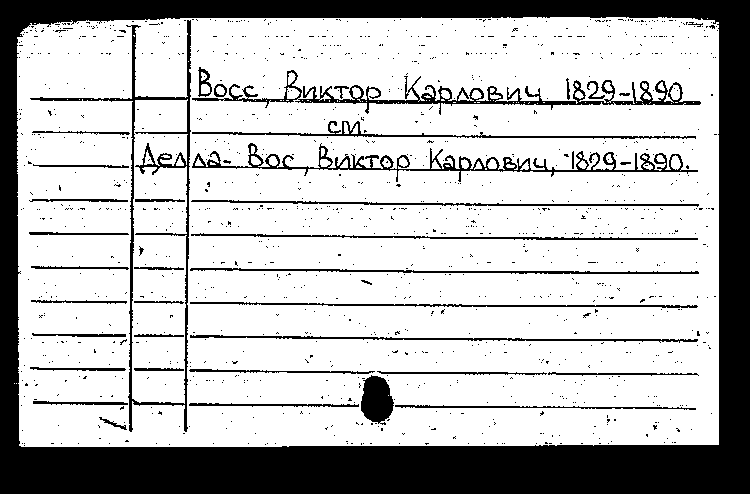 Восс, Виктор Карлович, 1829-1890
см.
Делла-Вос, Виктор Карлович, 1829-1890.